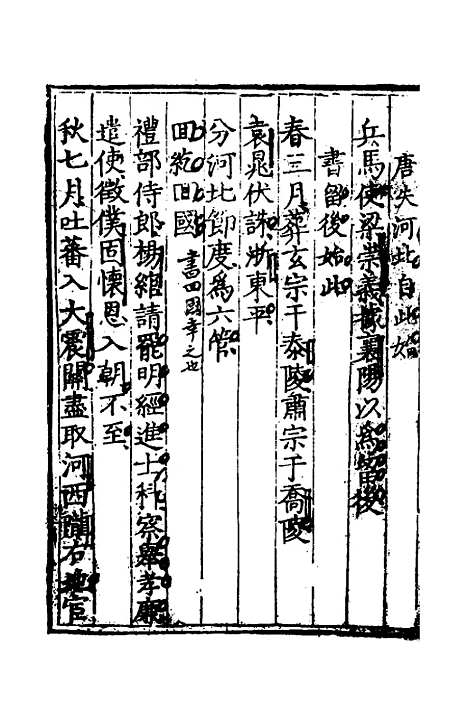 唐失河北自此始
兵馬使梁崇義據襄陽以為留後
書留後始此
春三月葬玄宗于泰陵肅宗于喬陵
袁晁伏誅浙東平
分河北節度為六管
回紇回國 書回國幸之也
禮部侍郎楊綰請罷明經進士科察舉孝廉
遣使徵僕固懷恩入朝不至
秋七月吐蕃入大震關盡取河西隴右地官